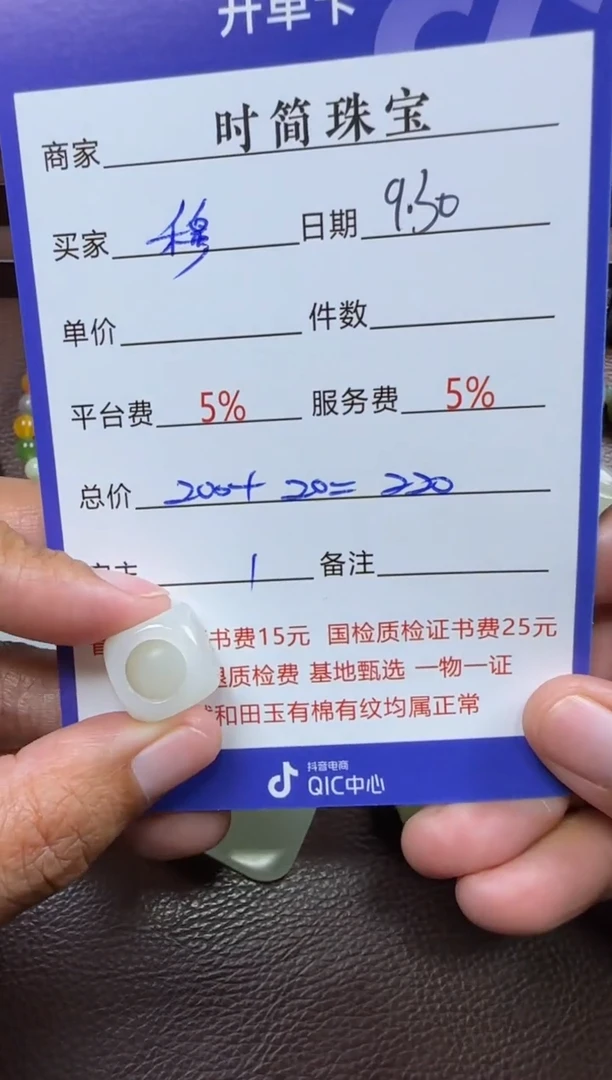 开单卡
商家 时简珠宝
买家 穆 日期 9.30
单价 件数
平台费 5% 服务费 5%
总价 200+ 20= 220
1 备注
书费15元 国检质检证书费25元
退质检费 基地甄选 一物一证
和田玉有棉有纹均属正常
抖音电商
QIC中心